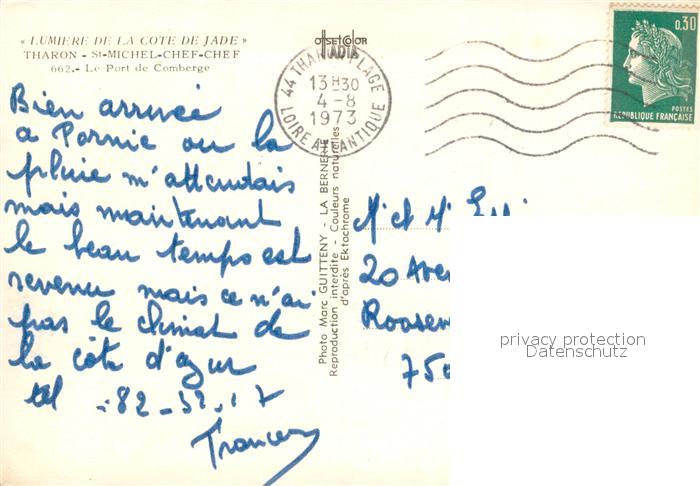 « LUMIÈRE DE LA COTE DE JADE »
THARON - St-MICHEL-CHEF-CHEF
662.- Le Port de Comberge
44 THARON PLAGE
13H30
4-8
1973
LOIRE ATLANTIQUE
0.30
POSTES
REPUBLIQUE FRANÇAISE
Bien arrivée
a Pornic ou la
pluie m'attendais
mais maintenant
le beau temps est
revenu mais ce n'ai
pas le climat de
la côte d'azur
tél -82-52.17
Photo Marc GUITTENY - LA BERNERIE
Reproduction interdite - Couleurs naturelles
d'après Ektachrome
M. et Me
20 Aven
Roosev
750
privacy protection
Datenschutz